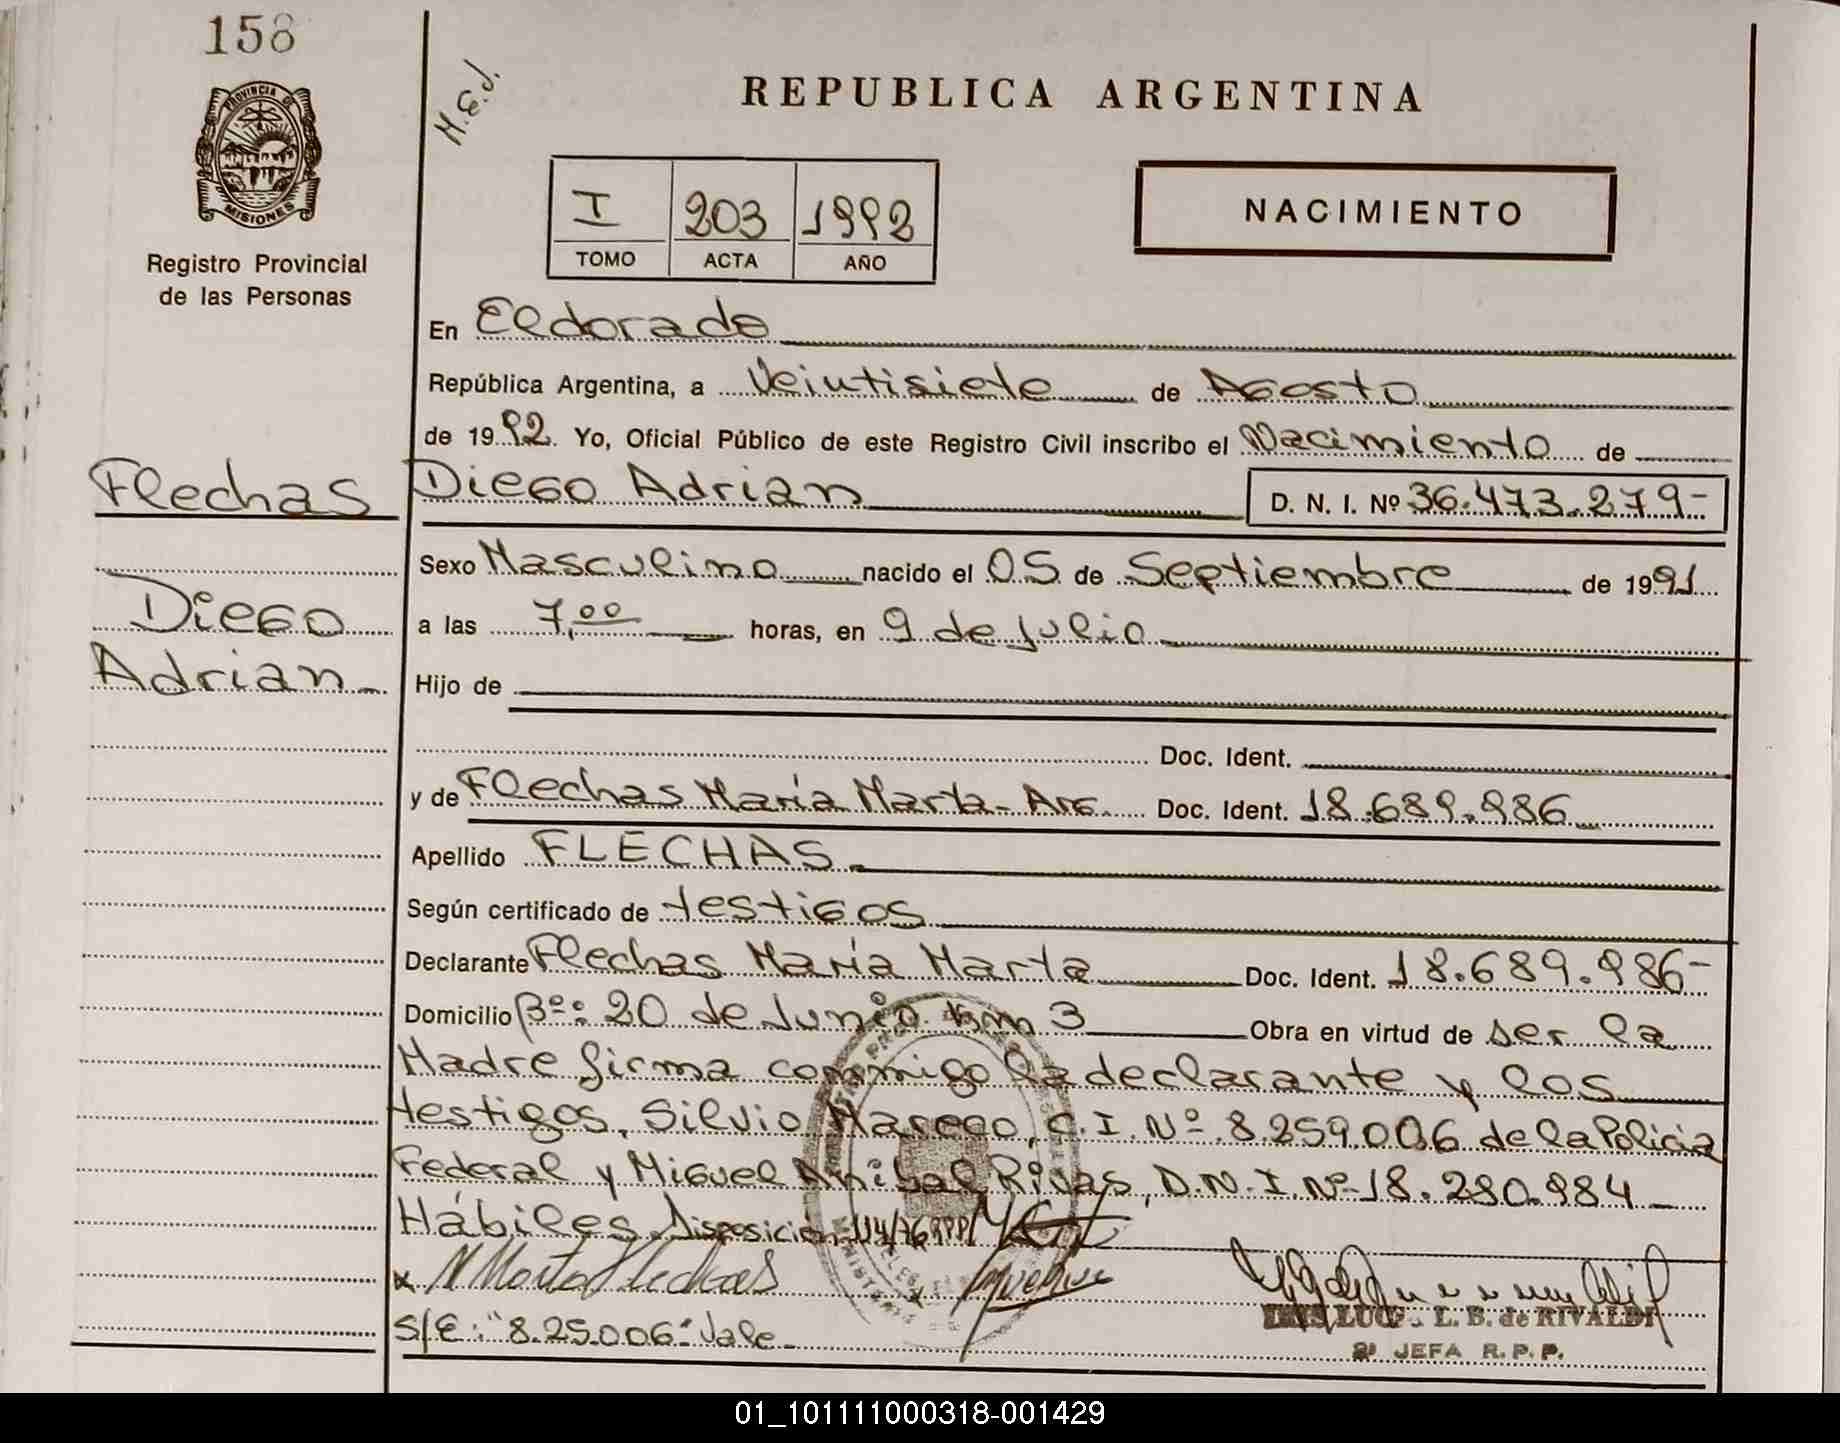 158
PROVINCIA DE
MISIONES
Registro Provincial
de las Personas
H.E.J.
REPUBLICA ARGENTINA
I 203 1992
TOMO ACTA AÑO
NACIMIENTO
En Eldorado
República Argentina, a Veintisiete de Agosto
de 1992. Yo, Oficial Público de este Registro Civil inscribo el Nacimiento de
Flechas Diego Adrian D. N. I. Nº 36.473.279-
Sexo Masculino nacido el 05 de Septiembre de 1991
Diego
a las 7,00 horas, en 9 de Julio
Adrian
Hijo de
Doc. Ident.
y de Flechas María Marta- Arg. Doc. Ident. 18.689.986
Apellido FLECHAS
Según certificado de testigos
Declarante Flechas María Marta Doc. Ident. 18.689.986-
Domicilio Bº: 20 de Junio km 3 Obra en virtud de ser la
Madre firma conmigo la declarante y los
testigos, Silvio Marego, C.I. Nº 8.259.006 de la Policia
Federal y Miguel Anibal Rivas, D.N.I. Nº 18.280.984
Hábiles. Disposición 114/76 RPP
x M Marta Flechas
L. B. de RIVALDI
2ª JEFA R. P. P.
S/E: "8.25.006" Vale
01_101111000318-001429